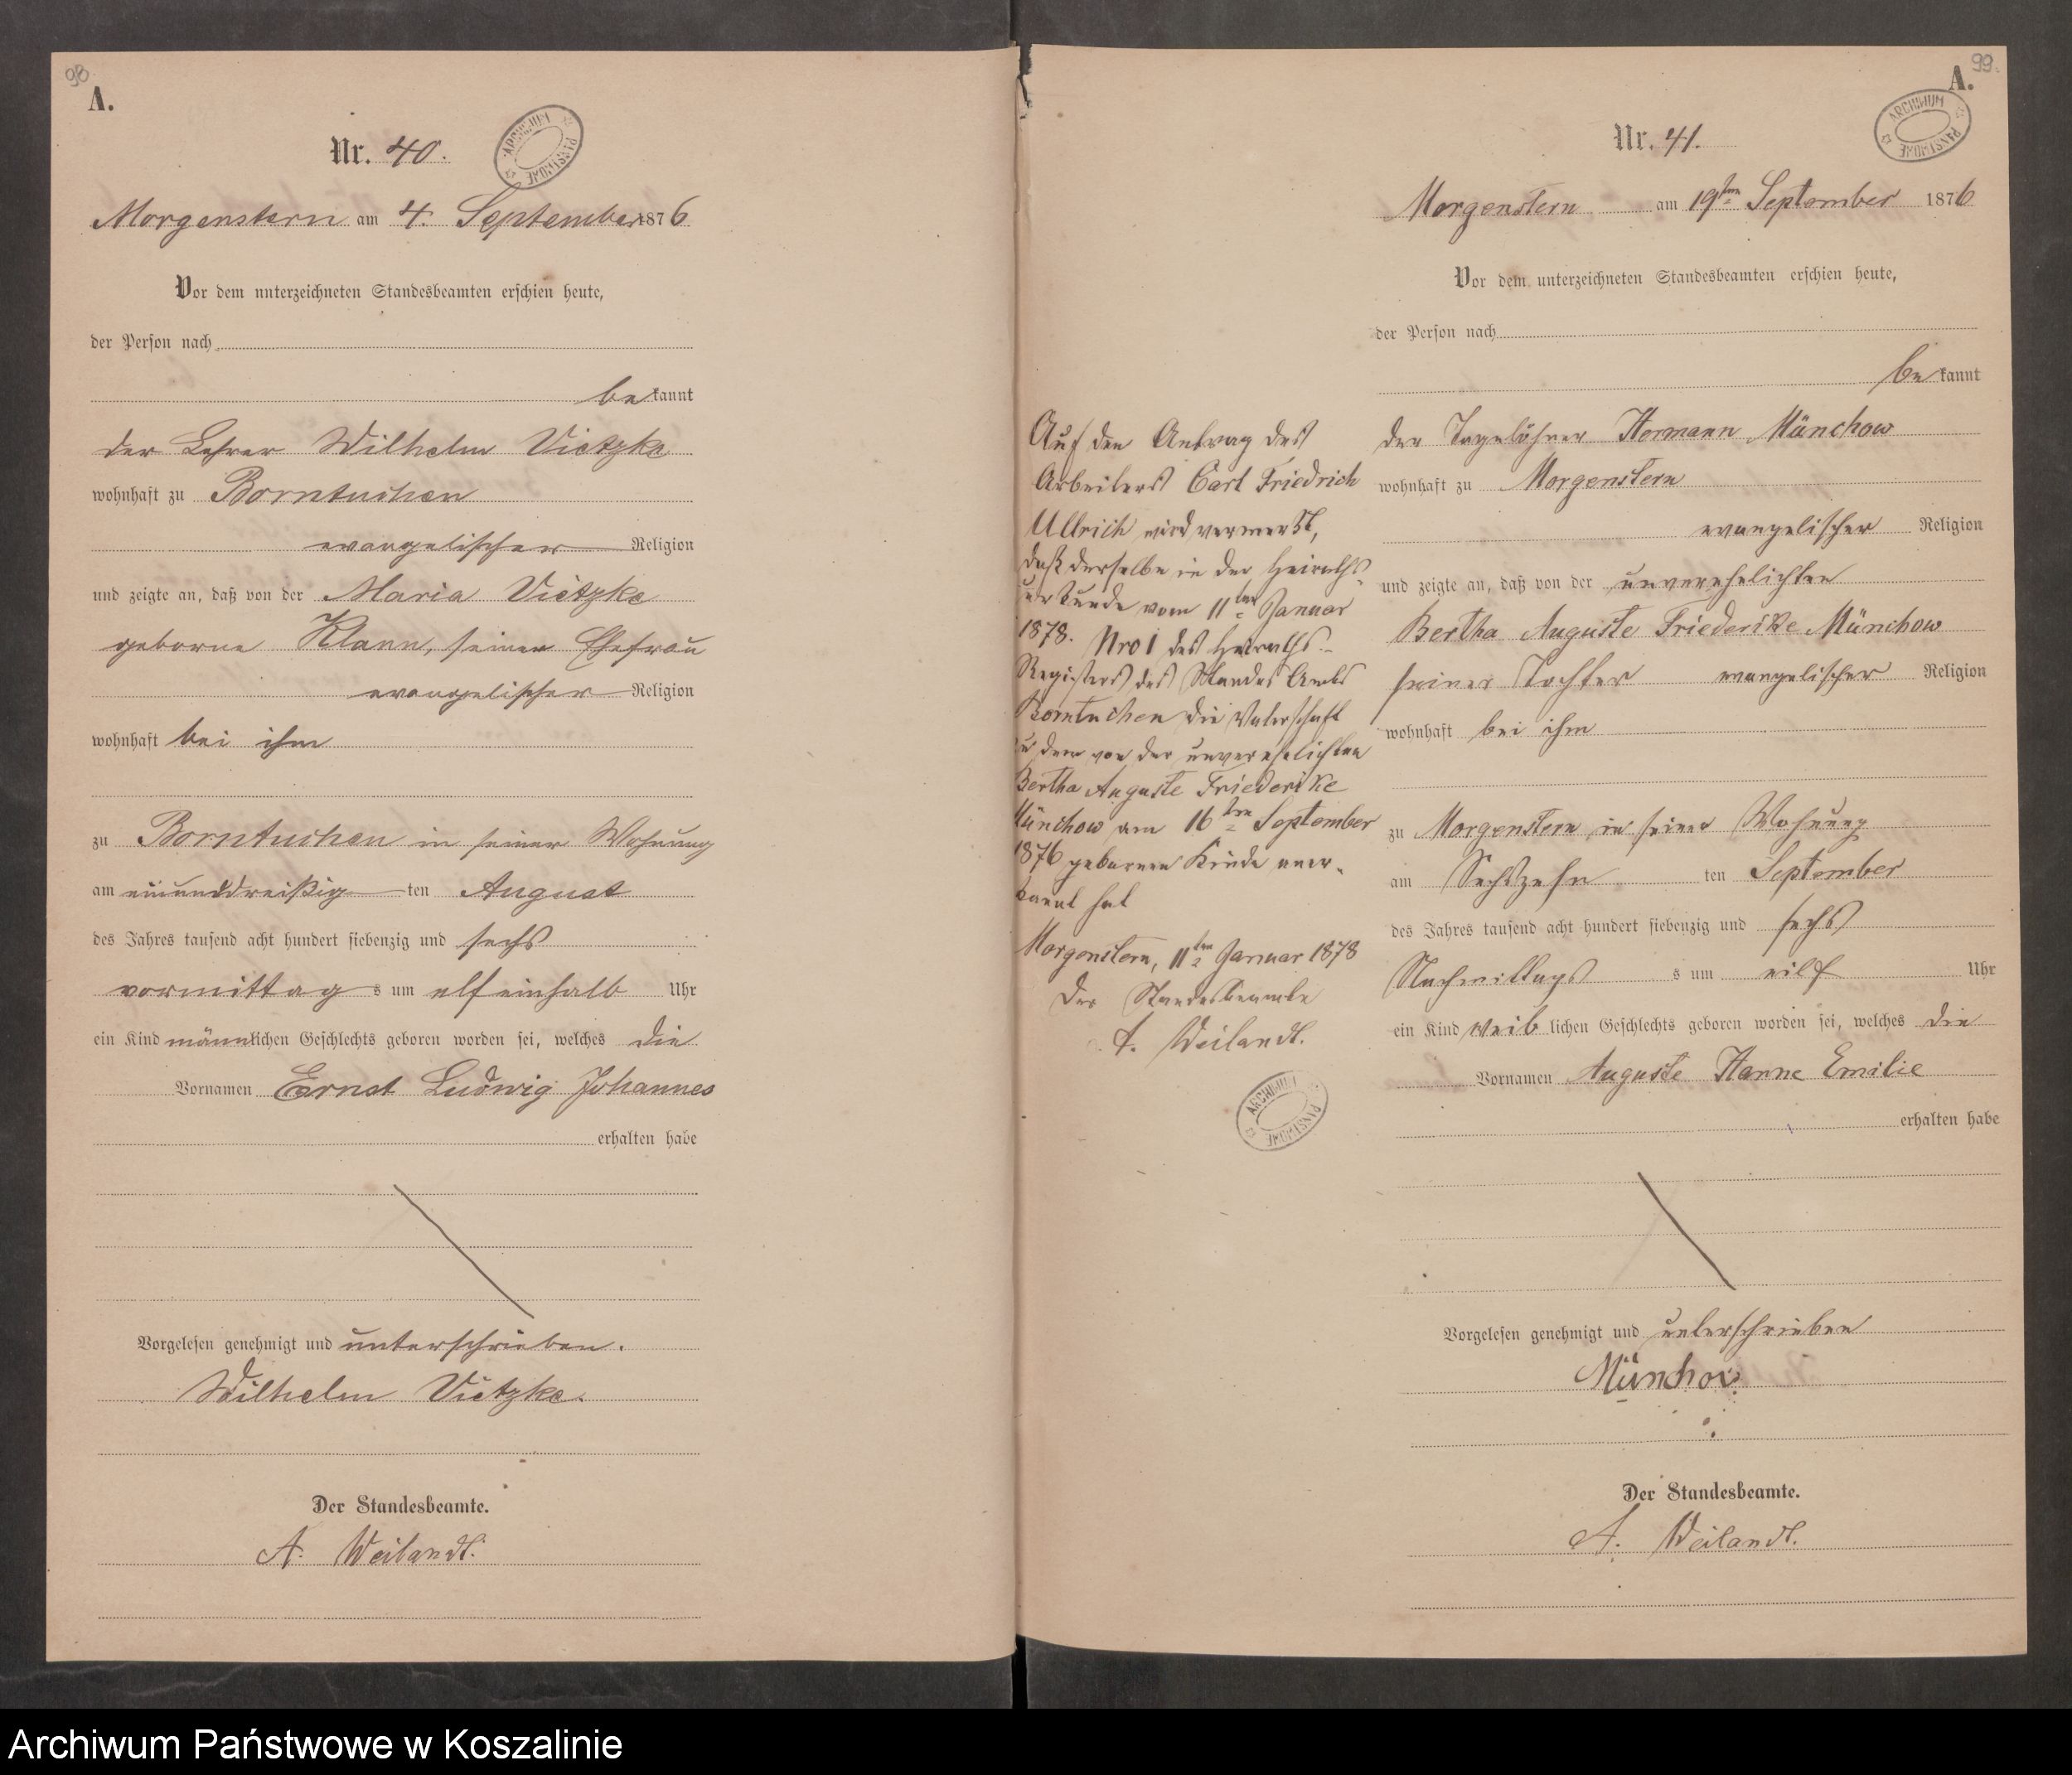 98
A.
Nr. 40.
ARCHIWUM PAŃSTWOWE
Morgenstern am 4. September 1876
Vor dem unterzeichneten Standesbeamten erschien heute,
der Person nach
bekannt
der Lehrer Wilhelm Vietzke
wohnhaft zu Borntuchen
evangelischer Religion
und zeigte an, daß von der Maria Vietzke
geborne Klann, seiner Ehefrau
evangelischer Religion
wohnhaft bei ihm
zu Borntuchen in seiner Wohnung
am einunddreißigten August
des Jahres tausend acht hundert siebenzig und sechs
vormittags um elfeinhalb Uhr
ein Kind männlichen Geschlechts geboren worden sei, welches die
Vornamen Ernst Ludwig Johannes
erhalten habe
Vorgelesen genehmigt und unterschrieben.
Wilhelm Vietzke.
Der Standesbeamte.
A. Weilandt.
99.
A.
Nr. 41.
ARCHIWUM PAŃSTWOWE
Morgenstern am 19ten September 1876
Vor dem unterzeichneten Standesbeamten erschien heute,
der Person nach
bekannt
der Tagelöhner Hermann Münchow
wohnhaft zu Morgenstern
evangelischer Religion
und zeigte an, daß von der unverehelichten
Bertha Auguste Friederike Münchow
seiner Tochter evangelischer Religion
wohnhaft bei ihm
zu Morgenstern in seiner Wohnung
am Sechszehn ten September
des Jahres tausend acht hundert siebenzig und sechs
Nachmittags s um eilf Uhr
ein Kind weiblichen Geschlechts geboren worden sei, welches die
Vornamen Auguste Hanne Emilie
erhalten habe
Vorgelesen genehmigt und unterschrieben
Münchow
Der Standesbeamte.
A. Weilandt.
Auf den Antrag des
Arbeiters Carl Friedrich
Ullrich wird vermerkt,
daß derselbe in der Heiraths-
urkunde vom 11ten Januar
1878. Nro 1 des Heiraths-
Registers des Standes Amts
Borntuchen die Vaterschaft
zu dem von der unverehelichten
Bertha Auguste Friederike
Münchow am 16ten September
1876 geborenen Kinde aner-
kannt hat
Morgenstern, 11ten Januar 1878
Der Standesbeamte
A. Weilandt.
ARCHIWUM PAŃSTWOWE
Archiwum Państwowe w Koszalinie